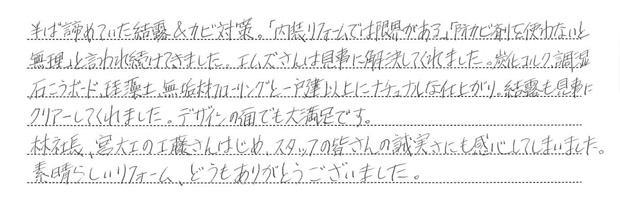 半ば諦めていた結露&カビ対策。「内装リフォームでは限界がある」「防カビ剤を使わないと
無理」と言われ続けてきました。エムズさんは見事に解決してくれました。炭化コルク、調湿
石こうボード、珪藻土、無垢材フローリングと一戸建以上にナチュラルな仕上がり。結露も見事に
クリアーしてくれました。デザインの面でも大満足です。
林社長、宮大工の工藤さんはじめ、スタッフの皆さんの誠実さにも感心してしまいました。
素晴らしいリフォーム、どうもありがとうございました。